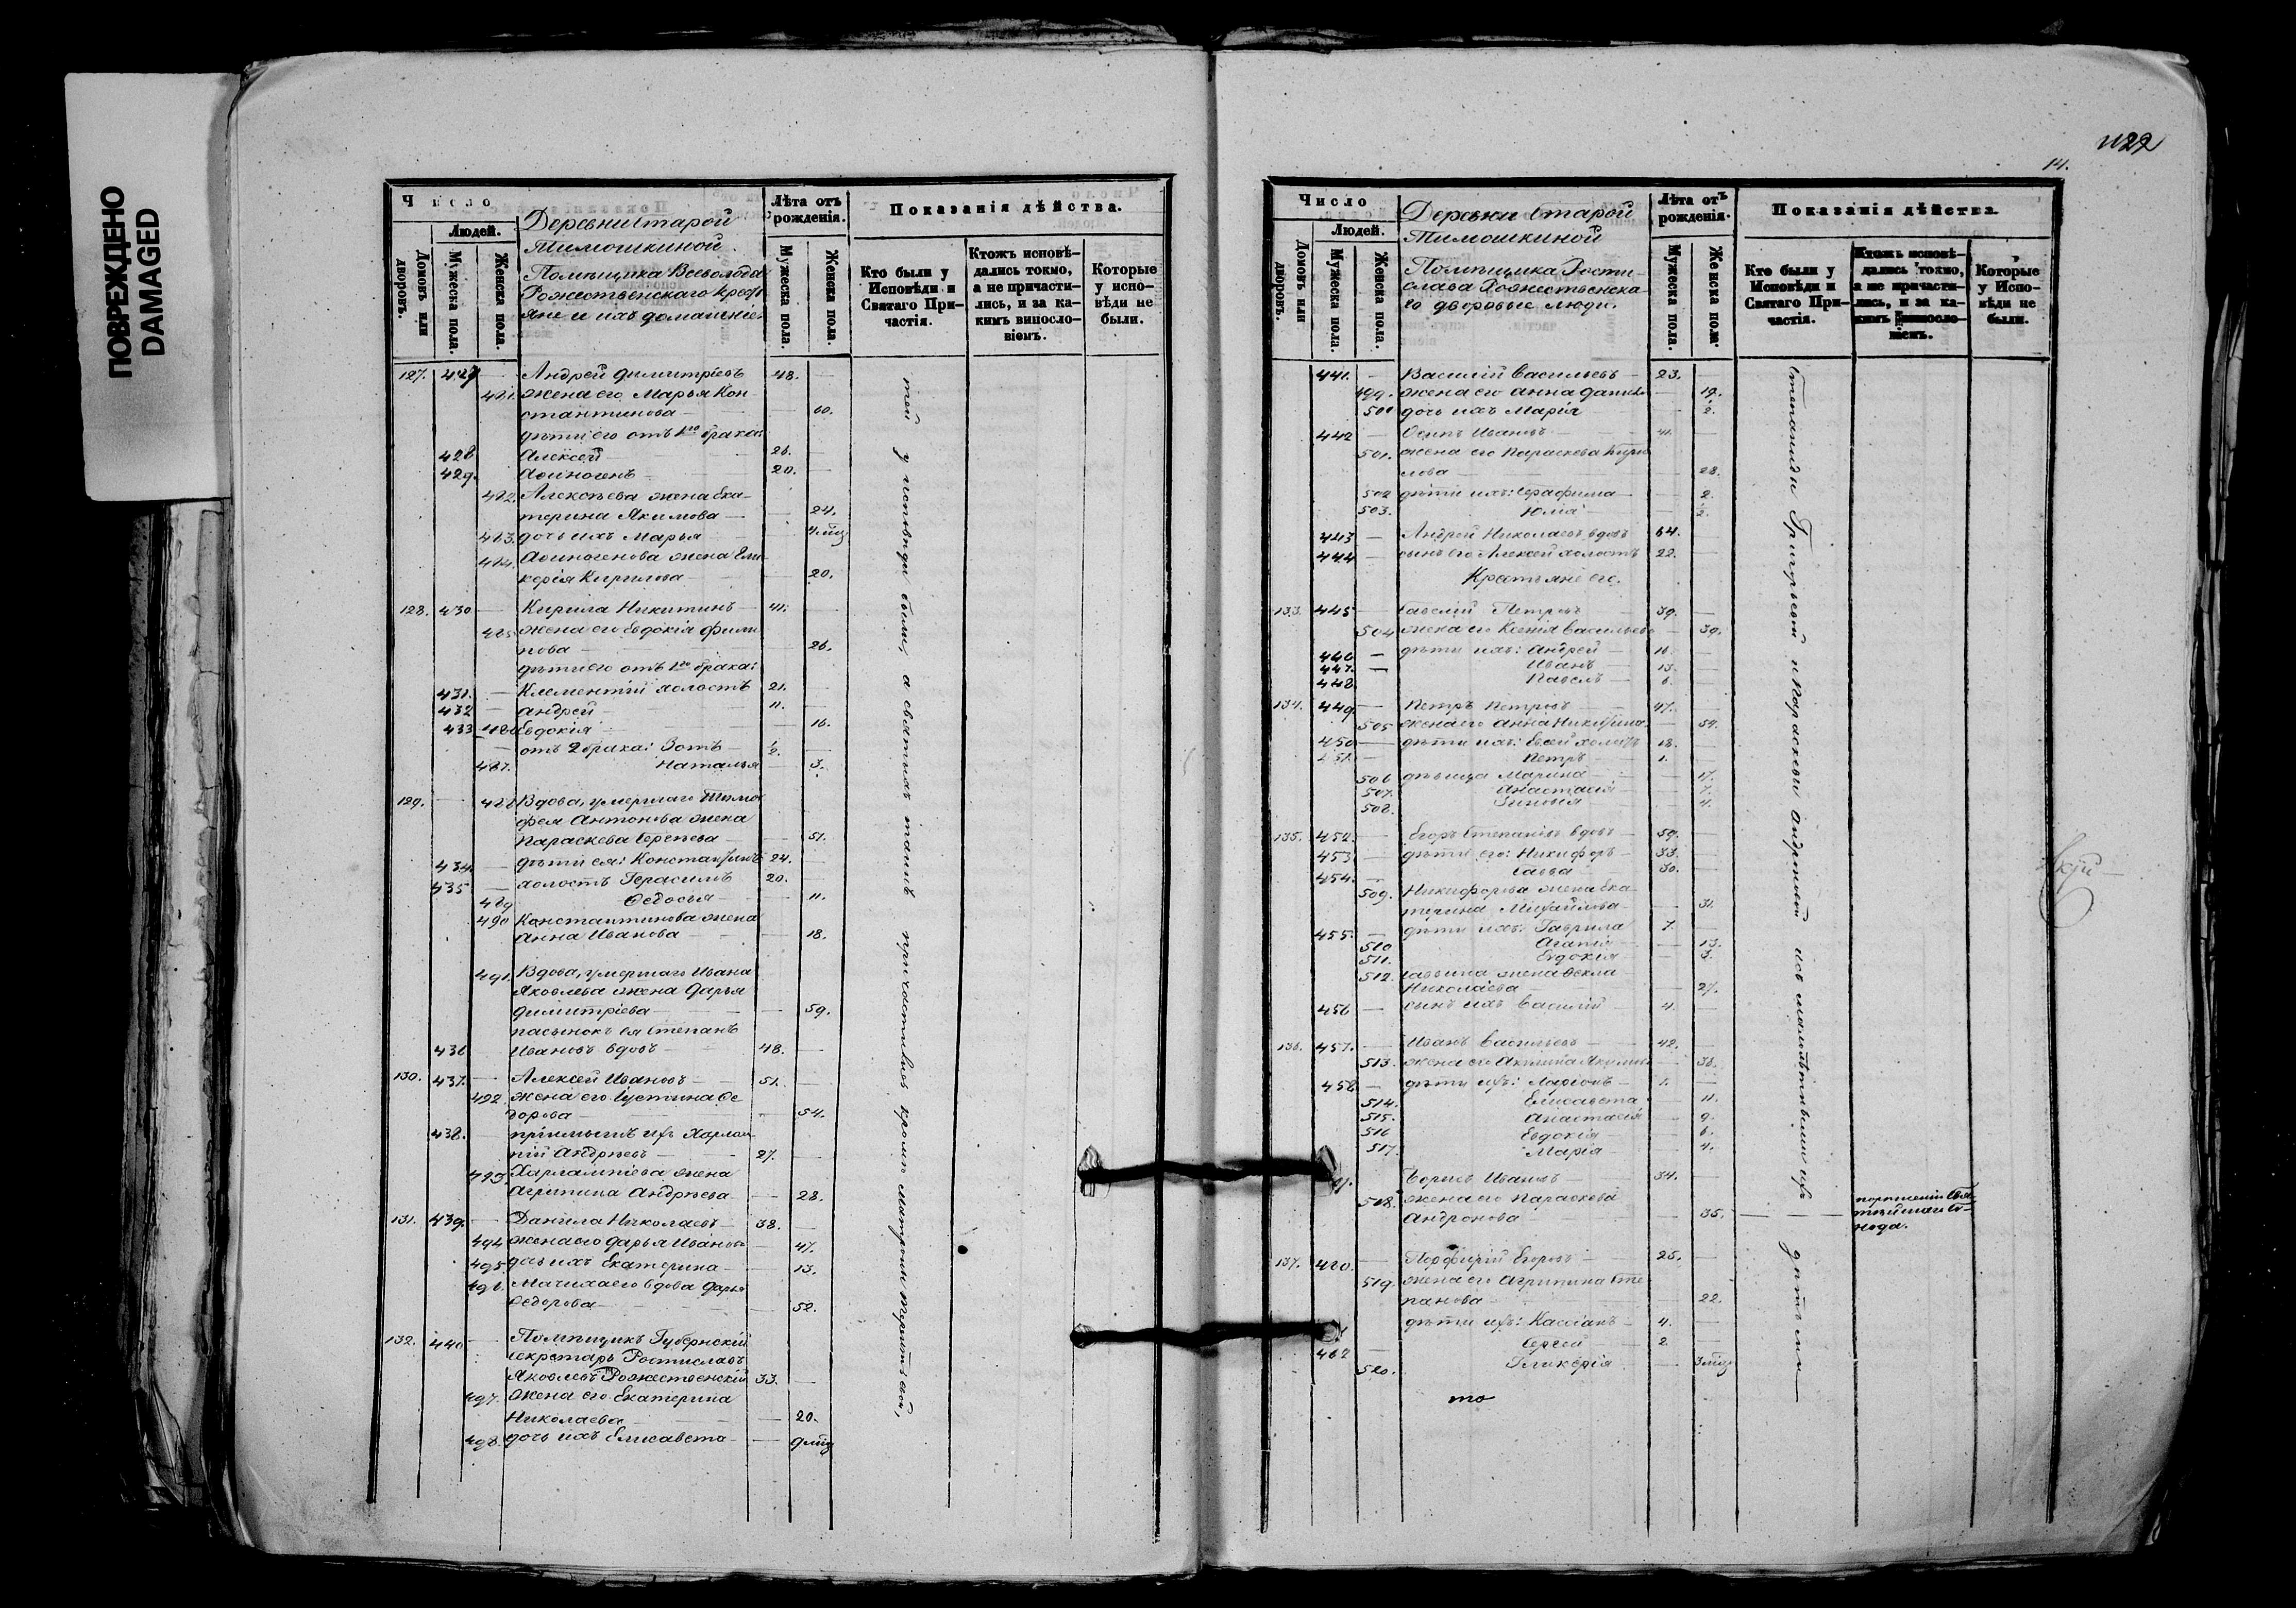 ПОВРЕЖДЕНО
DAMAGED
Число
Людей.
Домовъ или дворовъ.
Мужеска пола.
Женска пола.
Деревни Старой
Тимошкиной
Помѣщика Всеволода
Рожественскаго крестъ
яне и ихъ домашніе.
Лѣта отъ рожденія.
Мужеска пола.
Женска пола.
Показанія дѣйства.
Кто были у Исповѣди и Святаго Причастія.
Ктожъ исповѣдались токмо, а не причастились, и за какимъ винословіемъ.
Которые у исповѣди не были.
127. 427 — Андрей Димитріевъ 48. —
481. жена его Марья Кон
стантинова — — 60.
дѣти его отъ 1го брака:
428 Алексей — 26. —
429. Аѳиногенъ — 20. —
482. Алексѣева жена Ека-
терина Якимова — — 24.
483. дочь ихъ Марья 4 мѣц
484. Аѳиногенова жена Гли-
керія Кирилова — — 20.
128. 430 — Кирила Никитинъ — 41. —
485 жена его Евдокія Фили
пова — 26.
дѣти его отъ 1го брака:
431. — Клементій холостъ 21. —
432 — Андрей — 11. —
433 486 Евдокія — — 16.
— отъ 2 брака: Зотъ — ½. —
487. Наталья — — 3.
129. — 488 Вдова, умершаго Тимо
фея Антонова жена
Параскева Сергѣева — — 51.
434 — дѣти ея: Константинъ 24. —
435 — холостъ Герасимъ 20. —
489 Ѳедосья — — 11.
490 Константинова жена
Анна Иванова — — 18.
491. Вдова, умершаго Ивана
Яковлева жена Дарья
Димитріева — — 59.
пасынокъ ея Степанъ
436 Ивановъ вдовъ — 48. —
130. 437. — Алексей Ивановъ — 51. —
492. жена его Іустина Ѳе
дорова — — 54.
438. — пріемышъ ихъ Харлам
пій Андрѣевъ — 27. —
493. Харлампіева жена
Агрипина Андрѣева — — 28.
131. 439. — Данила Николаевъ — 38. —
494 жена его Дарья Иванова — 47.
495. дочь ихъ Екатерина — — 13.
496. Мачиха его вдова Дарья
Ѳедорова — — 52.
132. 440 — Помѣщикъ Губернскій
Секретарь Ростиславъ
Яковлевъ Рожественскій 33. —
497. жена его Екатерина
Николаева — — 20.
498. дочь ихъ Елисавета — — 9 мѣц
тей у исповѣди были, а святыхъ таинъ причастились кромѣ Матроны Терентьевой,
1122
14.
Число
Людей.
Домовъ или дворовъ.
Мужеска пола.
Женска пола.
Деревни Старой
Тимошкиной
Помѣщика Рости-
слава Рожественска-
го дворовые люди.
Лѣта отъ рожденія.
Мужеска пола.
Женска пола.
Показанія дѣйства.
Кто были у Исповѣди и Святаго Причастія.
Ктожъ исповѣдались токмо, а не причастились, и за какимъ винословіемъ.
Которые у Исповѣди не были.
441. — Василій Васильевъ — 23. —
499. жена его Анна — 19.
500 дочь ихъ Марія — ½.
442 — Осипъ Ивановъ — 41. —
501. жена его Параскева Кири
лова — — 28.
502 дѣти ихъ: Серафима — — 2.
503. Юлія — ½.
443 — Андрей Николаевъ вдовъ 64. —
444 — сынъ его Алексей холостъ 22. —
Крестьяне его.
133. 445 — Савелій Петровъ 39. —
504 жена его Ксенія Васильева — 39.
446 — дѣти ихъ: Андрей — 16 —
447. — Иванъ — 13. —
448 Павелъ — 6. —
134. 449. — Петръ Петровъ — 47. —
505 жена его Анна Никитина — 54.
450 — дѣти ихъ: Евсей холостъ 18. —
451. — Петръ — 1. —
506 дѣвица Марина — — 17.
507. Анастасія — — 7.
508. — 4.
135. 452. — Егоръ Степановъ вдовъ — 59. —
453 — дѣти его: Никифоръ — 33. —
454. — Савва — 30. —
509. Никифорова жена Ека-
терина Михайлова — — 31.
455. — дѣти ихъ: Гаврила 7. —
510 Агапія — — 13.
511. Евдокія — — 3.
512. Саввина жена Ѳекла
Николаева — — 27.
456 — сынъ ихъ Василій — 4. —
136. 457. — Иванъ Васильевъ — 42. —
513. жена его Акилина — 38.
458 — дѣти ихъ: Ларіонъ — 1. —
514. Елисавета — 11.
515. Анастасія — 9.
516 Евдокія — — 6.
517. Марія — — 4.
Борисъ Ивановъ — 34. —
518. жена его Параскева
Андронова — — 35.
137. 460. — Порфирій Егоровъ — 25. —
519. жена его Агрипина Сте
панова — — 22.
дѣти ихъ: Кассіанъ — 4. —
462 — Сергей — 2 —
520. Гликерія — 3 мѣц
то
Степаниды Григорьевой и Параскевы Андроновой съ малолѣтными ихъ дѣтьми —